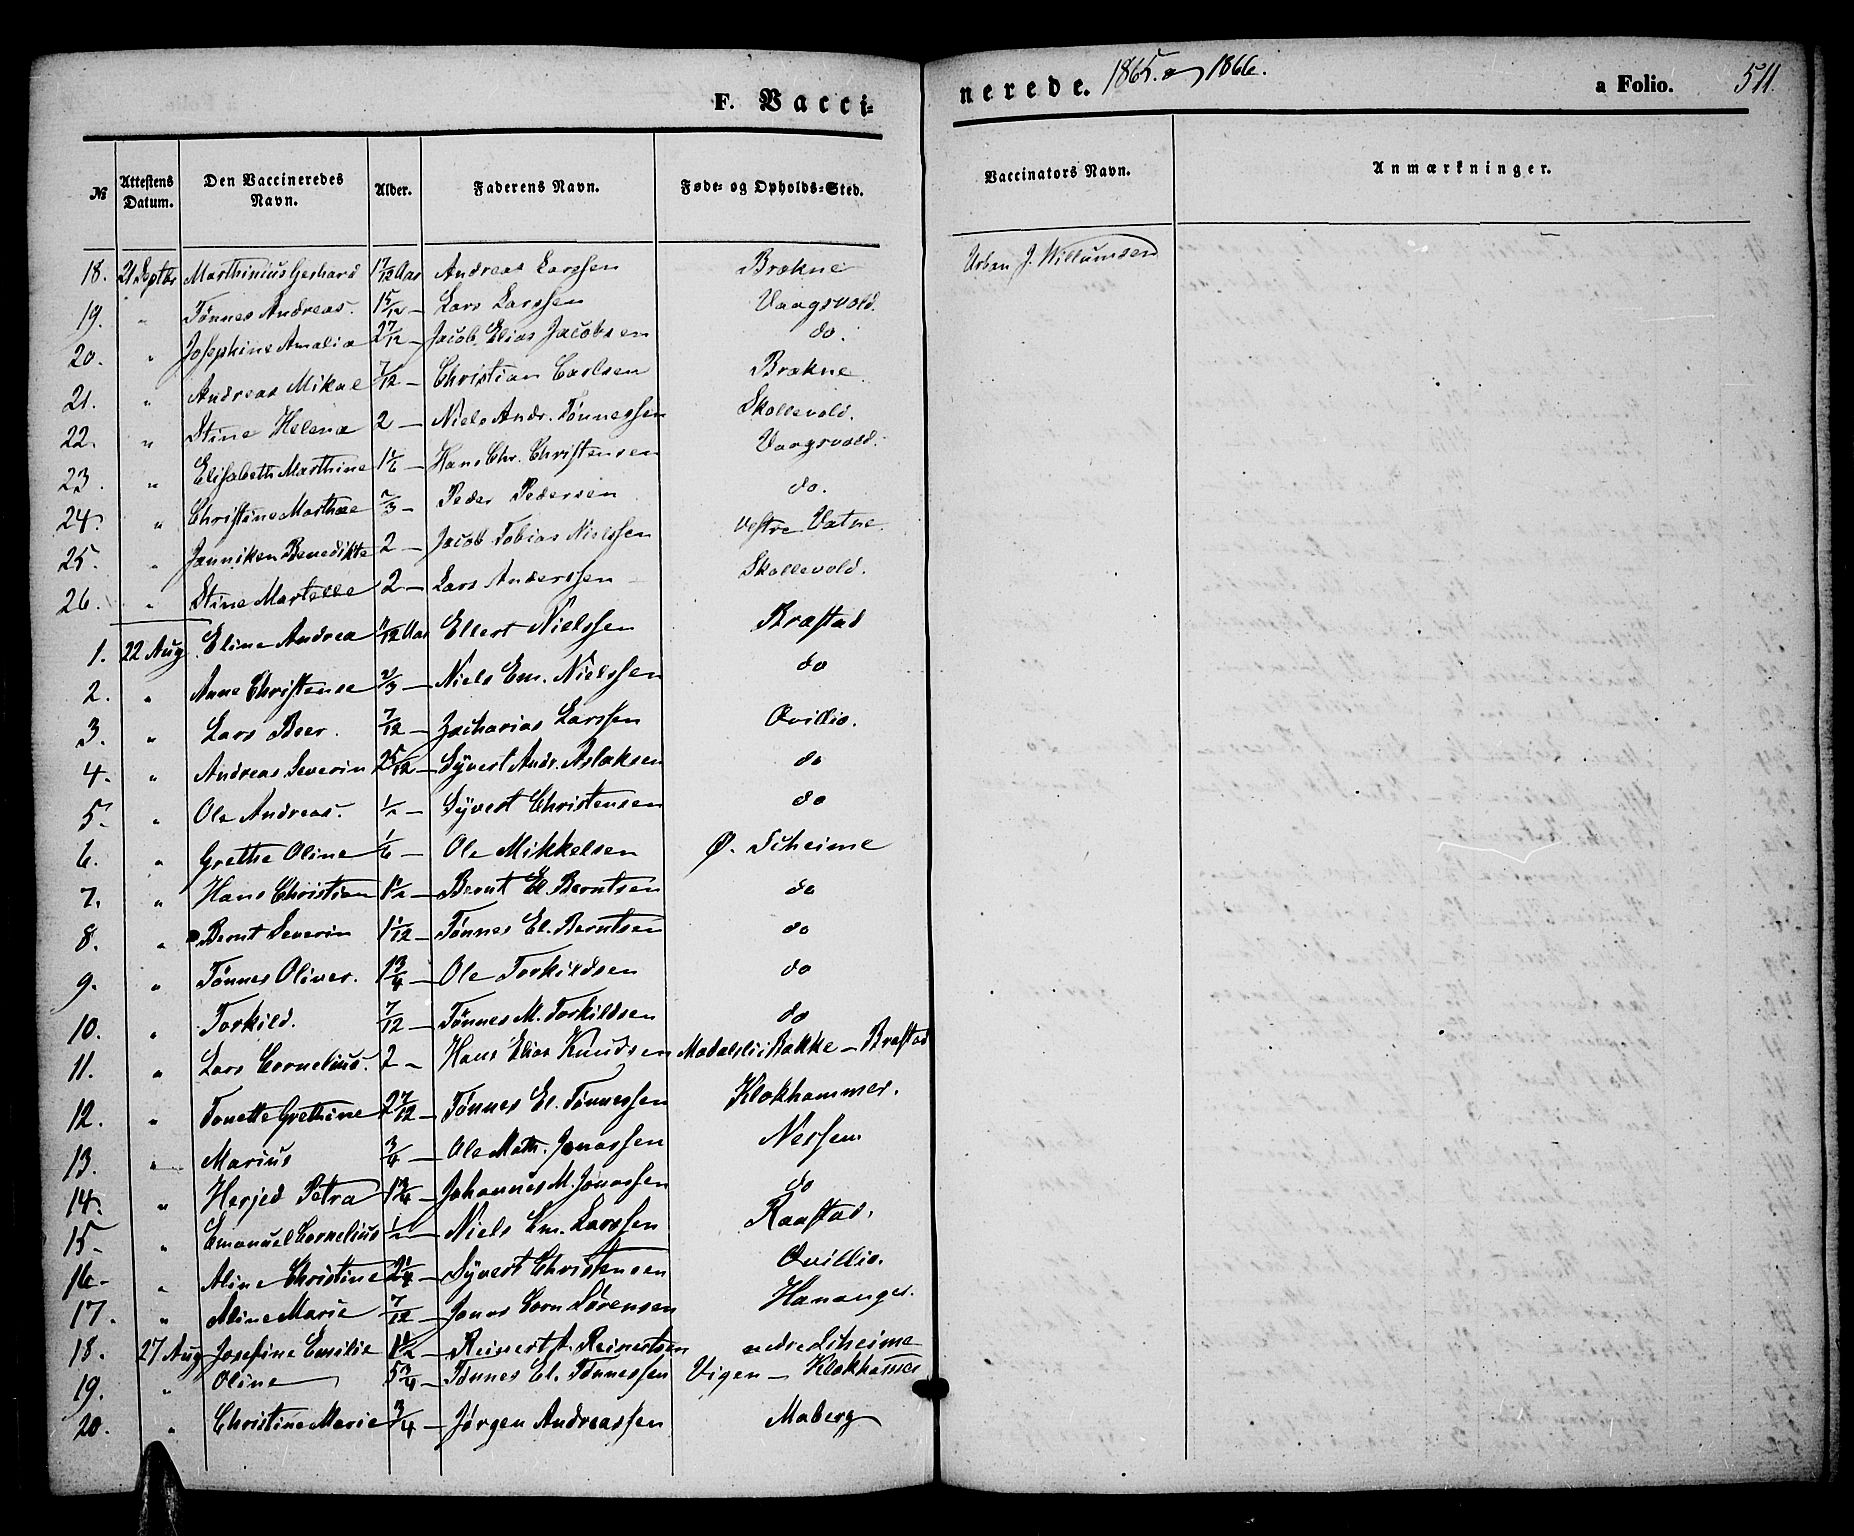 F. Vacci-
nerede. 1865. og 1866.
a Folio. 511.
№ | Attestens Datum. | Den Vaccineredes Navn. | Alder. | Faderens Navn. | Føde- og Opholds-Sted. | Vaccinators Navn. | Anmærkninger.
18. 21 Septbr Marthinius Gerhard 1 7/12 Aar Andreas Larssen Brækne Urban J. Willumsen
19. " Tønnes Andreas. 1 5/12 — Lars Larssen Vaagsvold.
20. " Josephine Amalia 2 7/12 — Jacob Elias Jacobsen do.
21. " Andreas Mikal 7/12 — Christian Carlsen Brækne
22. " Stine Helene 2 — Niels Andr. Tønnessen Skollevold.
23. " Elisabeth Marthine 1 1/6 — Hans Chr. Christensen Vaagsvold.
24. " Christine Marthae 2/3 — Peder Pedersen do.
25. " Janniken Benedikte 2 — Jacob Tobias Nielssen Vestre Vatne.
26. " Stine Martelle 2 — Lars Anderssen Skollevold.
1. 22 Aug Eline Andrea 11/12 Aar Ellert Nielssen Brastad
2. " Anne Christense 2/3 — Niels Em. Nielssen do
3. " Lars Beer. 7/12 — Zacharias Larssen Qvillio.
4. " Andreas Severin 2 5/12 — Syvert Andr. Aslaksen do
5. " Ole Andreas. 1/2 — Syvert Christensen do
6. " Grethe Oline 1/6 — Ole Mikkelsen Ø. Skeime
7. " Hans Christian 1 1/2 — Bernt El. Berntsen do
8. " Bernt Severin 1 1/12 — Tønnes El. Berntsen do
9. " Tønnes Oliver. 1 3/4 — Ole Torkildsen do
10. " Torkild. 7/12 — Tønnes M. Torkildsen do
11. " Lars Cornelius. 2 — Hans Elias Knudsen Bakke — Brastad
12. " Tonette Grethine 2 7/12 — Tønnes El. Tønnessen Klokhammer.
13. " Marius 3/4 — Ole Math. Jonassen Nessen
14. " Herjed Petra — Johannes M. Jonassen do
15. " Emanuel Cornelius 1/2 — Niels Em. Larssen Raastad.
16. " Aline Christine 2 1/4 — Syvert Christensen Qvillio.
17. " Aline Marie 7/12 — Jonas Corn Sørensen Hananger.
18. 27 Aug Josefine Emilie 1 1/2 — Reinert A. Reinertsen nedre Skeime
19. " Oline 5 3/4 — Tønnes El. Tønnessen Vigen — Klokhamer
20. " Christine Marie 3/4 — Jørgen Andreassen Maberg